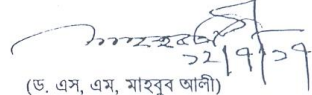 ১২/৭/১৭
(ড. এস, এম, মাহবুব আলী)